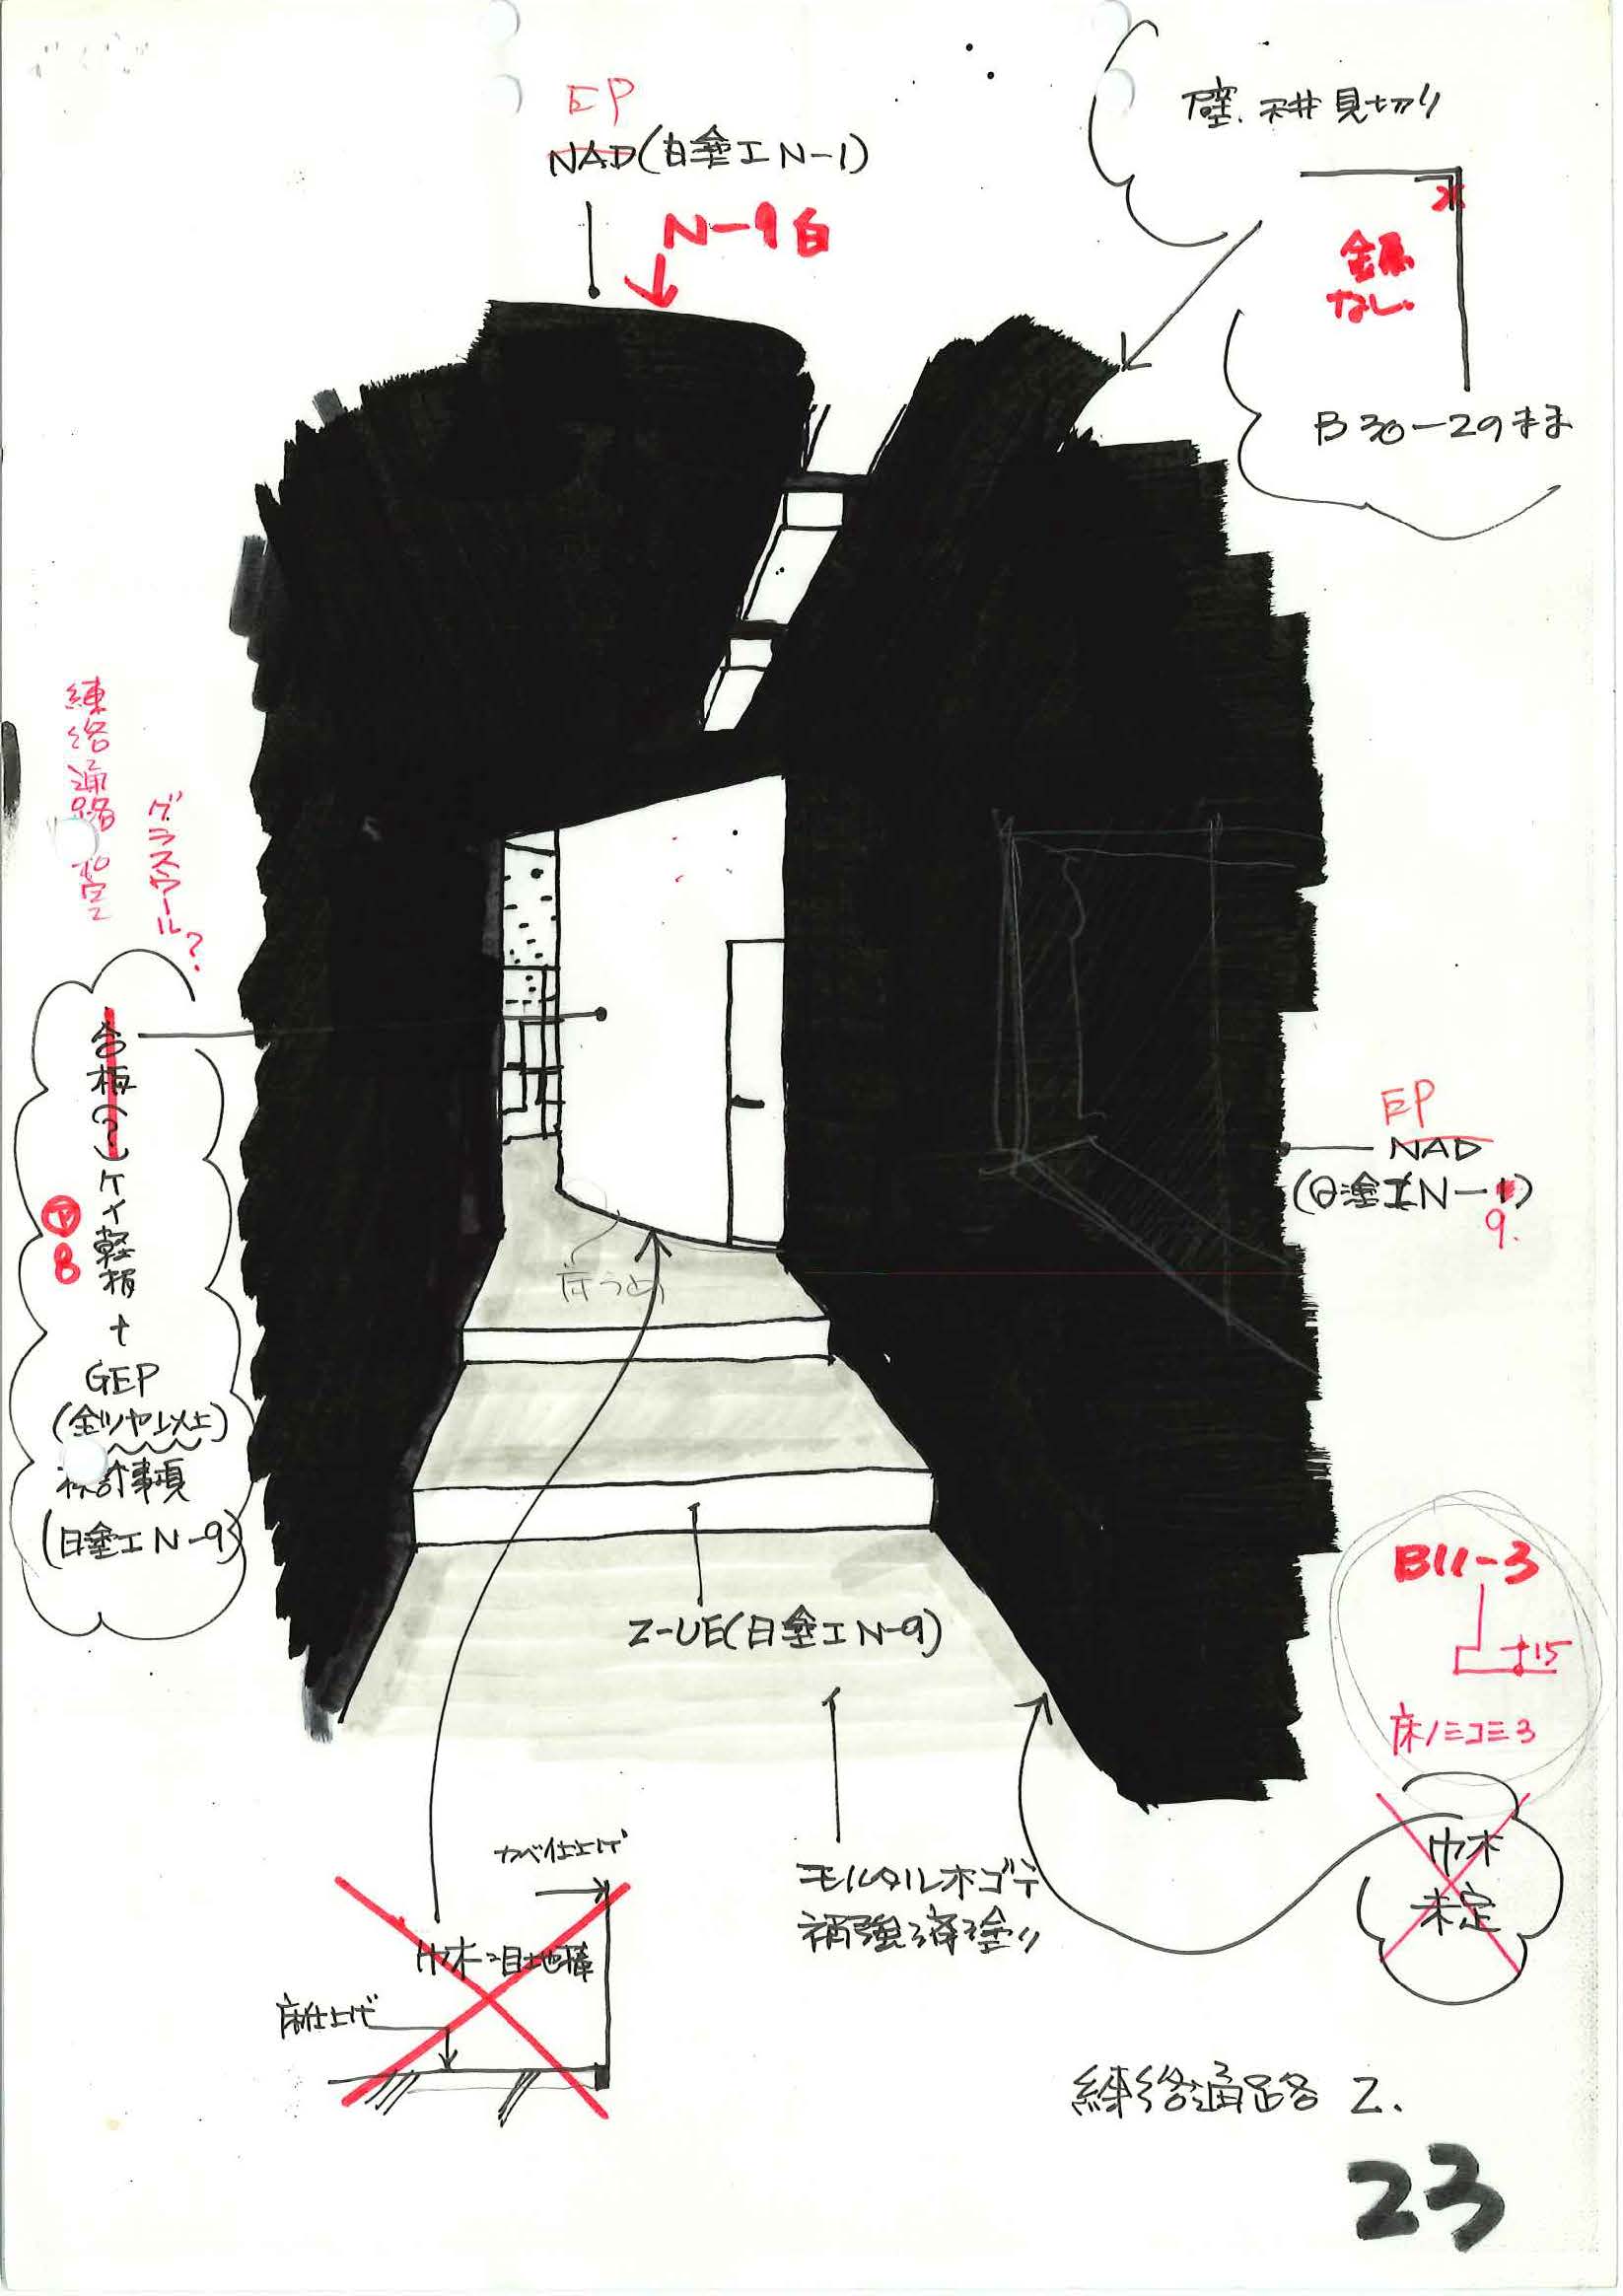 EP
NAD(日塗工N-1)
N-9白
壁.天井見切り
金属
なし.
B30-29まま
練絡通路
グラスウール?
合板(?)
ケイ軽板
+
GEP
(全ツヤ以上)
検討事項
(日塗工N-9)
B
EP
NAD
(日塗工N-1)
9.
床うめ
Z-UE(日塗工N-9)
B11-3
15
床ノミコミ3
巾木
未定
カベ仕上げ
巾木:目地棒
床仕上げ
モルタル木ゴテ
補強済塗り
練絡通路 2.
23